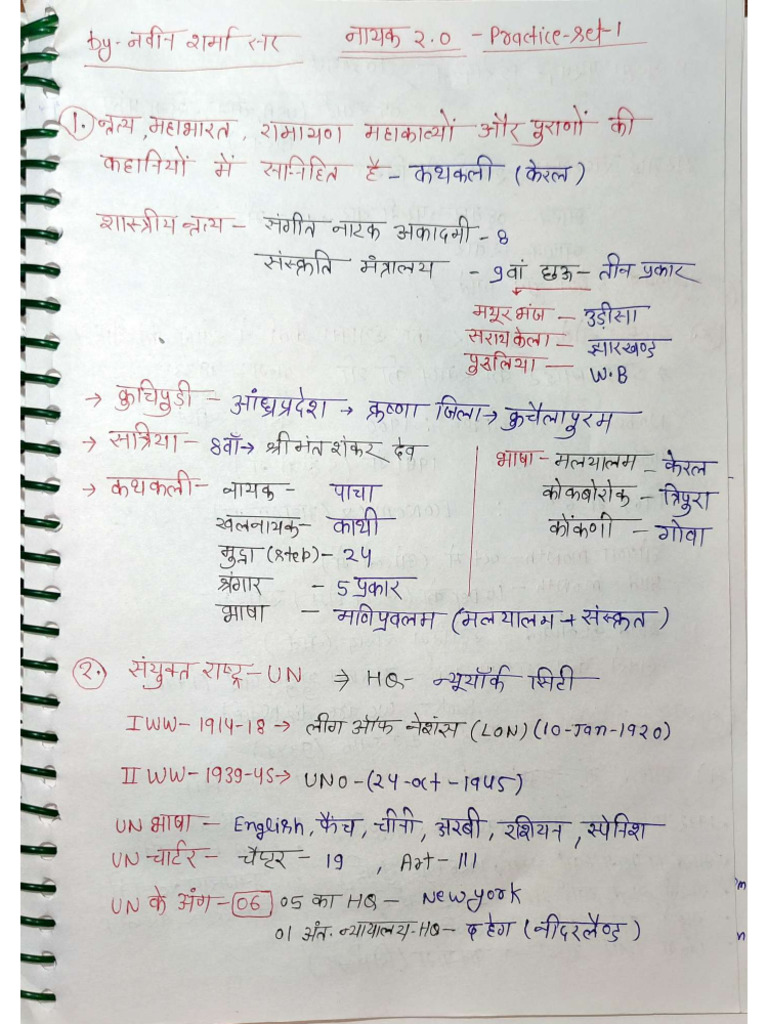 by- नवीन शर्मा सर नायक 2.0 - Practice-set-1
1. नृत्य, महाभारत, रामायण महाकाव्यों और पुराणों की
कहानियों में सन्निहित है - कथकली (केरल)
शास्त्रीय नृत्य - संगीत नाटक अकादमी - 8
संस्कृति मंत्रालय - 9वां छऊ - तीन प्रकार
मयूरभंज - उड़ीसा
सरायकेला - झारखण्ड
पुरुलिया - W.B
→ कुचिपुड़ी - आंध्रप्रदेश → कृष्णा जिला → कुचैलापुरम
→ सात्रिया - 8वाँ → श्रीमंत शंकर देव
भाषा - मलयालम - केरल
कोकबोरोक - त्रिपुरा
कोंकणी - गोवा
→ कथकली - नायक - पाचा
खलनायक - काथी
मुद्रा (step) - 24
श्रंगार - 5 प्रकार
भाषा - मणिप्रवलम (मलयालम + संस्कृत)
2. संयुक्त राष्ट्र - UN ⇒ HQ - न्यूयॉर्क सिटी
I WW - 1914-18 → लीग ऑफ नेशंस (LON) (10-Jan-1920)
II WW - 1939-45 → UNO - (24-oct-1945)
UN भाषा - English, फ्रैंच, चीनी, अरबी, रशियन, स्पेनिश
UN चार्टर - चैप्टर - 19, Art - 111
UN के अंग - 06 05 का HQ - Newyork
01 अंत. न्यायालय - HQ - द हेग (नीदरलैण्ड)